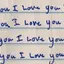 you I Love you
ou I Love you
you I Love you
you I Love you